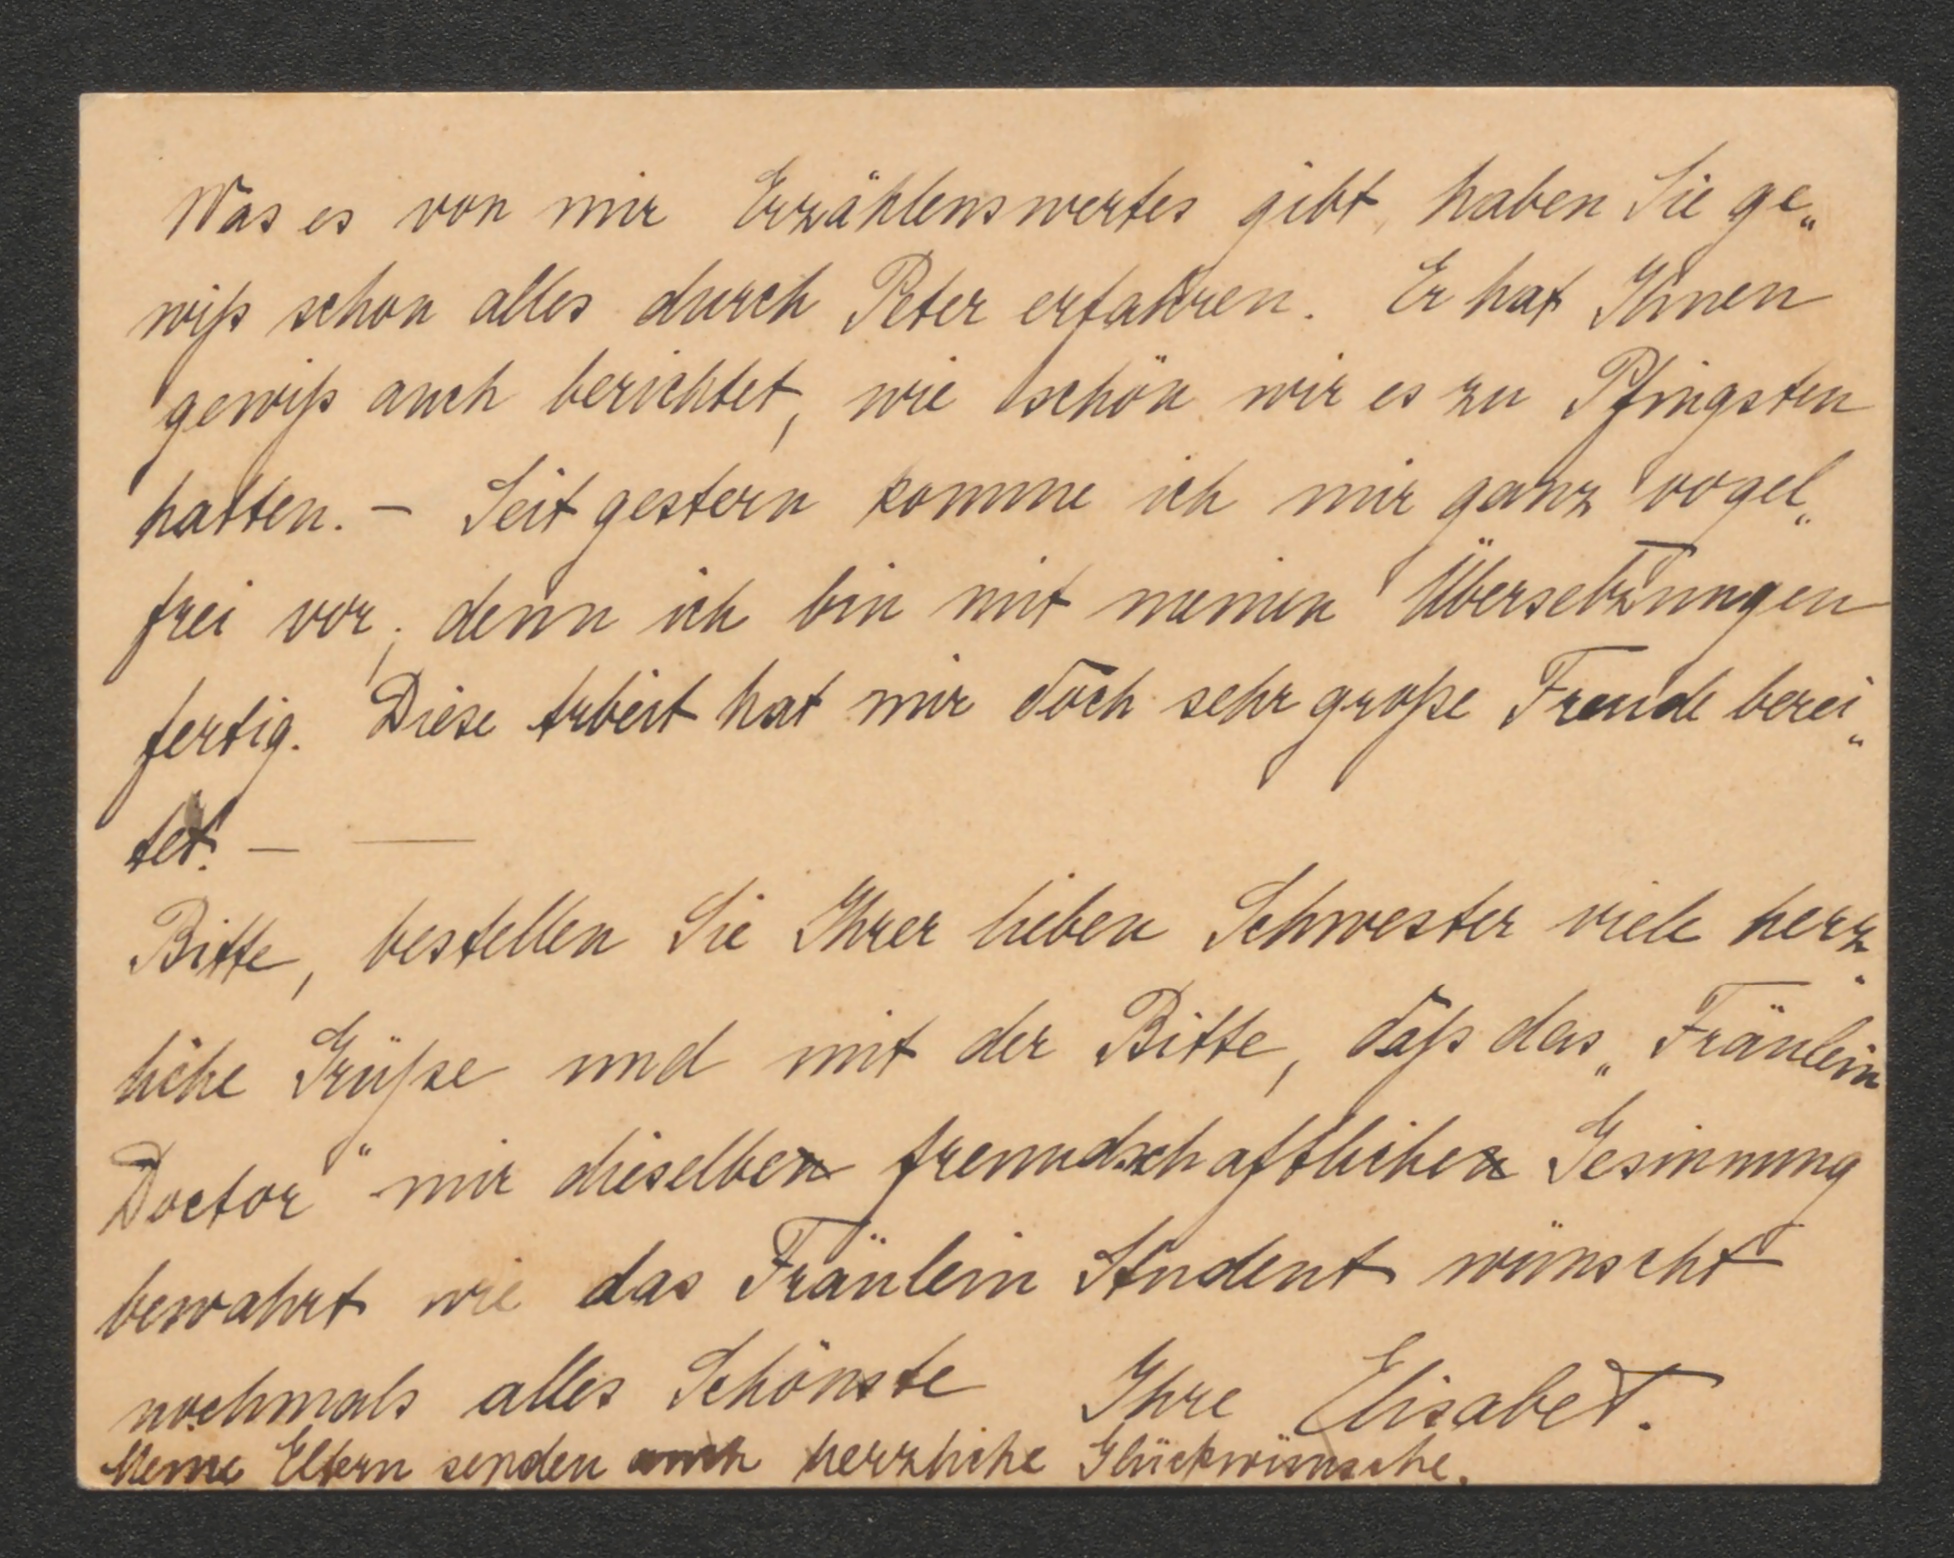 Was es von mir Erzählenswertes gibt, haben Sie ge„
wiß schon alles durch Peter erfahren. Er hat Ihnen
gewiß auch berichtet, wie schön wir es zu Pfingsten
hatten. – Seit gestern komme ich mir ganz vogel„
frei vor, denn ich bin mit meinen Übersetzungen
fertig. Diese Arbeit hat mir doch sehr große Freude berei„
tet. – —
Bitte, bestellen Sie Ihrer lieben Schwester viele herz„
liche Grüße und mit der Bitte, daß das „Fräulein
Doctor“ mir dieselbe freundschaftliche Gesinnung
bewahrt wie das Fräulein Student wünscht
nochmals alles Schönste Ihre Elisabet.
Meine Eltern senden auch herzliche Glückwünsche.